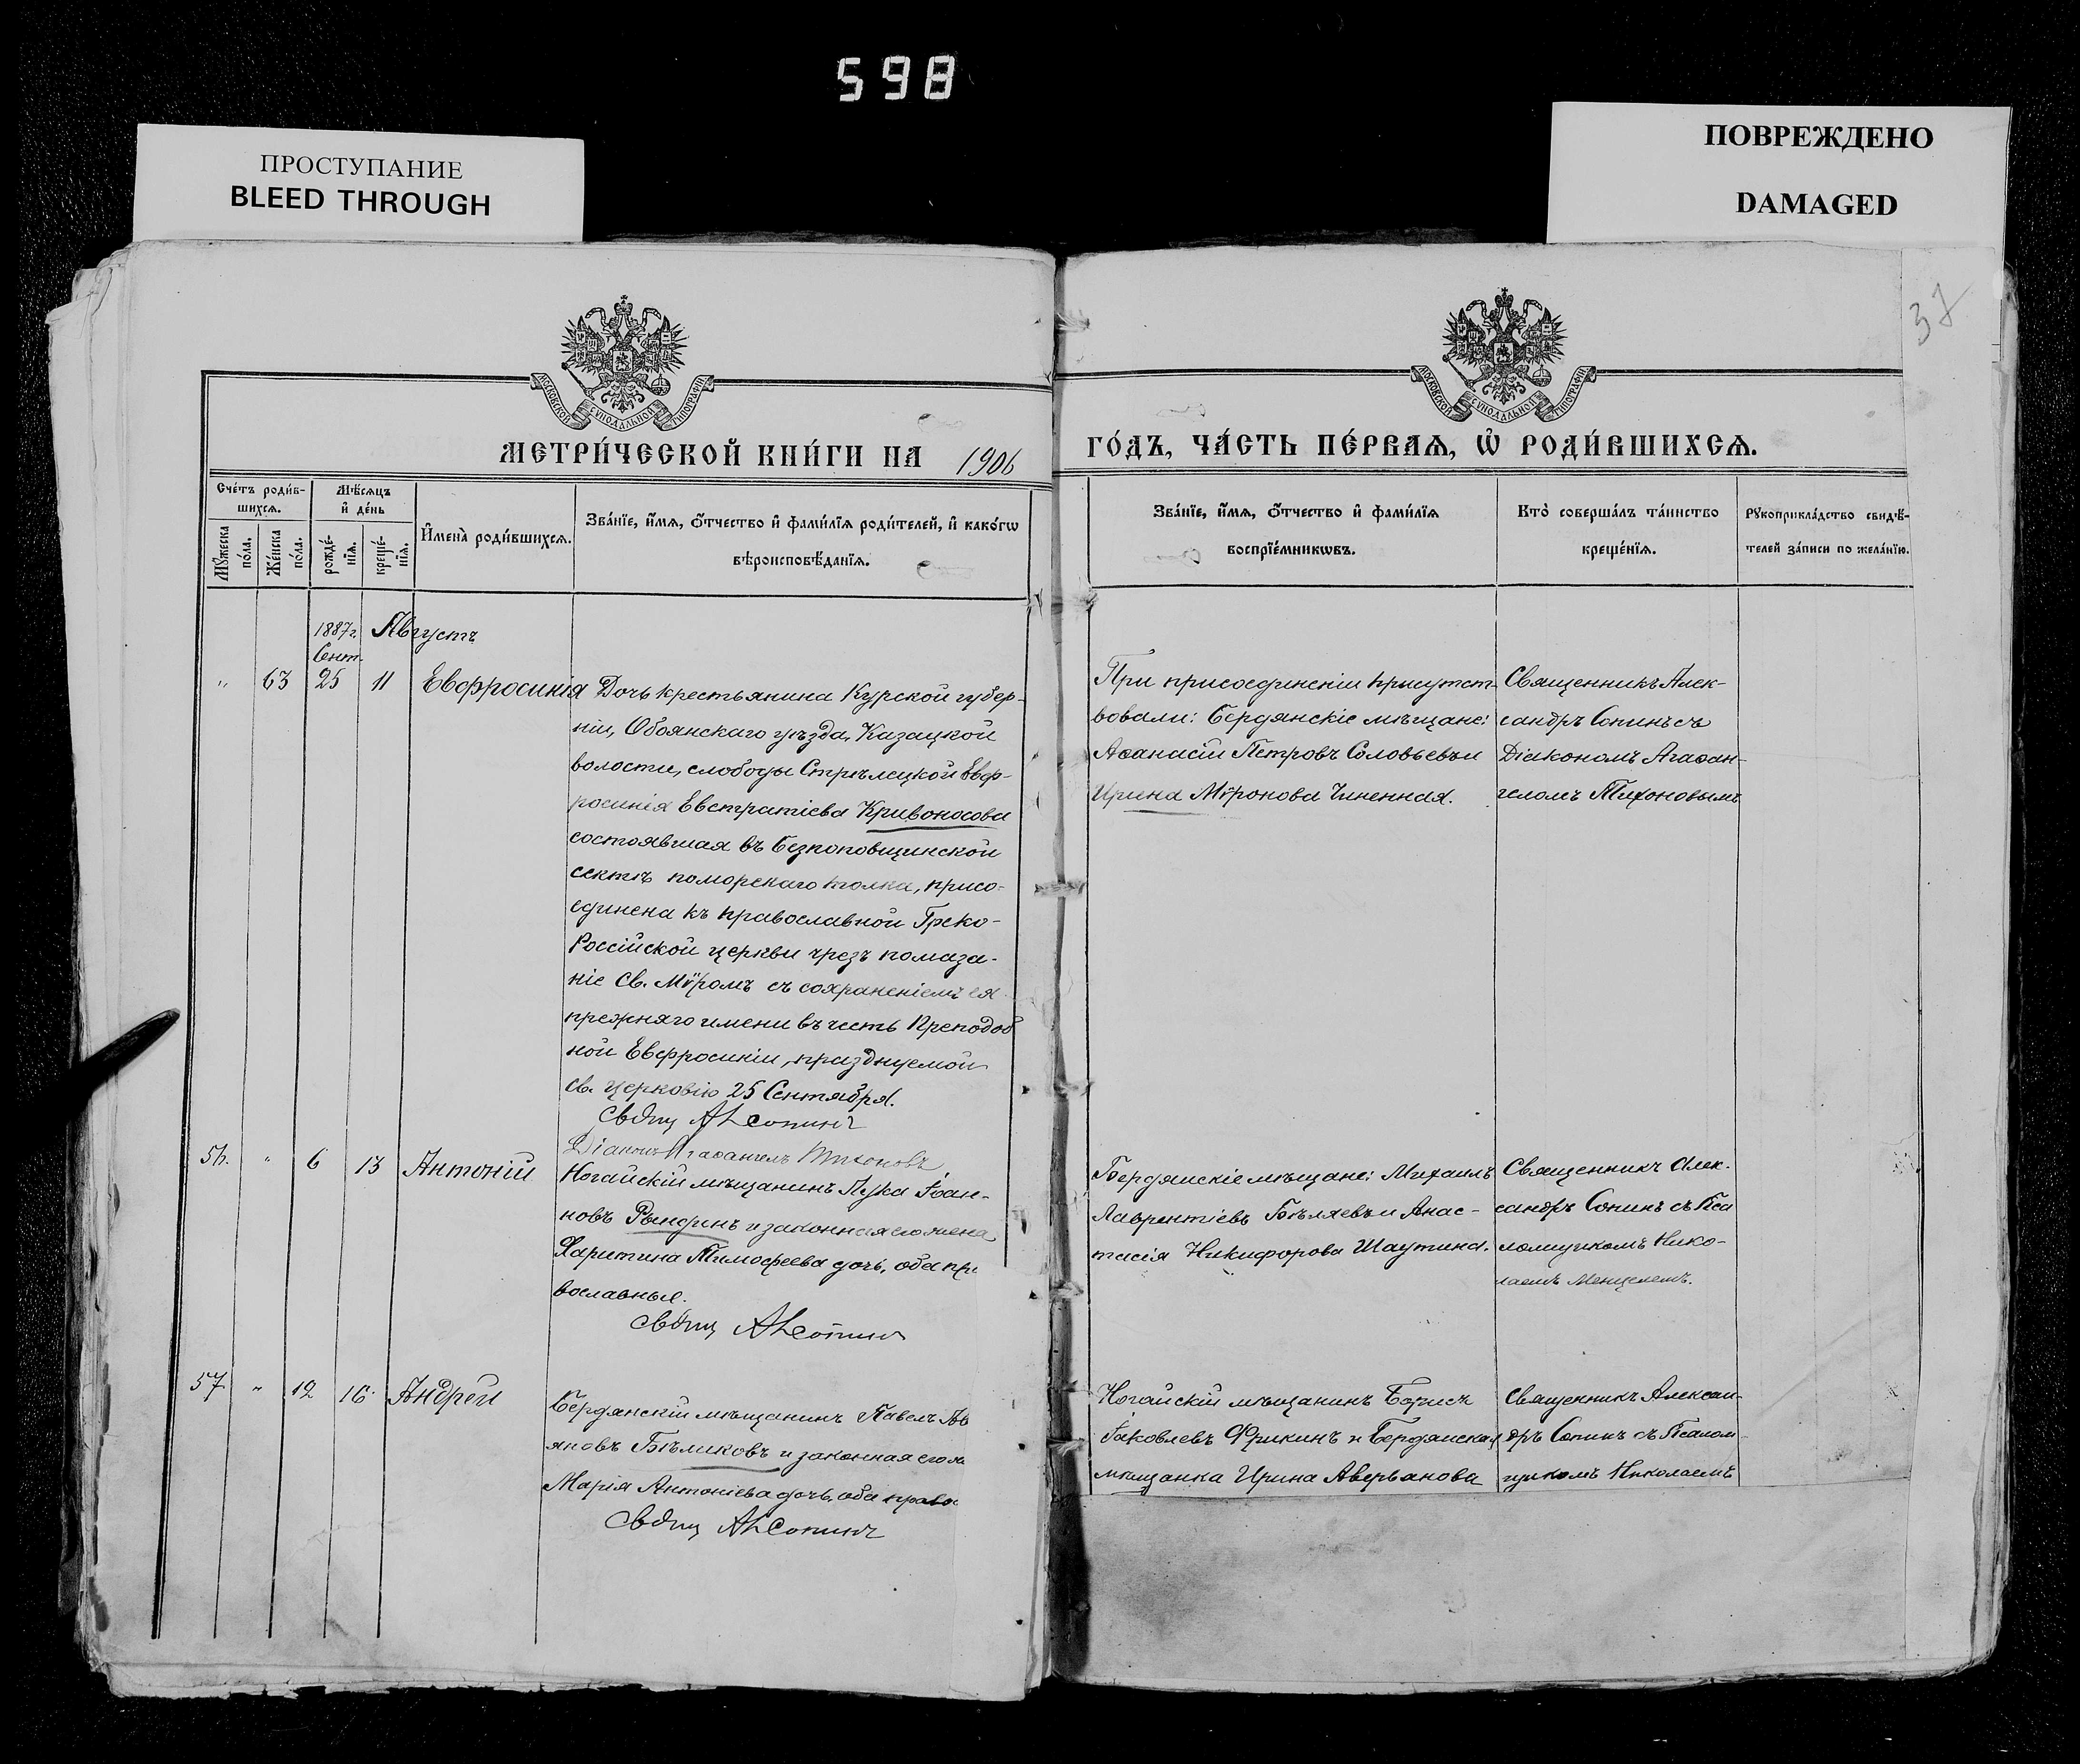 598
ПРОСТУПАНИЕ
BLEED THROUGH
ПОВРЕЖДЕНО
DAMAGED
37
МОСКОВСКОЙ СѴНОДАЛЬНОЙ ТИПОГРАФІИ
МОСКОВСКОЙ СѴНОДАЛЬНОЙ ТИПОГРАФІИ
МЕТРИ́ЧЕСКОЙ КНИ́ГИ НА 1906
ГО́ДЪ, ЧА́СТЬ ПЕ́РВАѦ, Ѡ҆ РОДИ́ВШИХСѦ.
Сче́тъ роди́в-
шихсѧ.
Мѹ́жеска по́ла.
Же́нска по́ла.
Мѣ́сѧцъ
и҆ де́нь
рожде́-нїѧ.
креще́-нїѧ.
И҆мена̀ роди́вшихсѧ.
Зва́нїе, и҆́мѧ, ѻ҆́тчество и҆ фами́лїѧ роди́телей, и҆ како́гѡ
вѣроисповѣ́данїѧ.
Зва́нїе, и҆́мѧ, ѻ҆́тчество и҆ фами́лїѧ
воспрїе́мникѡвъ.
Кто̀ соверша́лъ та́инство
креще́нїѧ.
Рѹкоприкла́дство свидѣ́-
телей за́писи по жела́нїю.
1887г. Августъ
Сент.
" 63 25 11 Евфросинія Дочь крестьянина Курской губер-
ніи, Обоянскаго уѣзда, Казацкой
волости, слободы Стрѣлецкой Евф-
росинія Евстратіева Кривоносова
состоявшая въ Безпоповщинской
сектѣ поморскаго толка, присо-
единена къ православной Греко-
Россійской церкви чрезъ помаза-
ніе Св. Мѵромъ съ сохраненіемъ ея
прежняго имени въ честь Преподоб
ной Евфросиніи, празднуемой
св. церковію 25 Сентября.
Свящ А Сопинъ
Діаконъ Агаѳангелъ Тихоновъ
При присоединеніи присутст-
вовали: Бердянскіе мѣщане:
Аѳанасій Петровъ Соловьевъ и
Ирина Мѵронова Чиненная.
Священникъ Алек-
сандръ Сопинъ съ
Діакономъ Агаѳан-
геломъ Тихоновымъ
56. " 6 13 Антоній Ногайскій мѣщанинъ Лука Іоан-
новъ Рындинъ и законная его жена
Харитина Тимофеева дочь, оба пра
вославные.
Свящ А Сопинъ
Бердянскіе мѣщане: Михаилъ
Лаврентіевъ Бѣляевъ и Анас-
тасія Никифорова Шаутина.
Священникъ Алек-
сандръ Сопинъ съ Пса
ломщикомъ Нико-
лаемъ Менцелемъ.
57 " 12 16. Андрей Бердянскій мѣщанинъ Павелъ Іо
анновъ Бѣликовъ и законная его ж
Марія Антоніева дочь, оба право
Свящ А Сопинъ
Ногайскій мѣщанинъ Борисъ
Іаковлевъ Фрикинъ и Бердянская
мѣщанка Ирина Аверьанова
Священникъ Алексан-
дръ Сопинъ съ Псалом
щикомъ Николаемъ